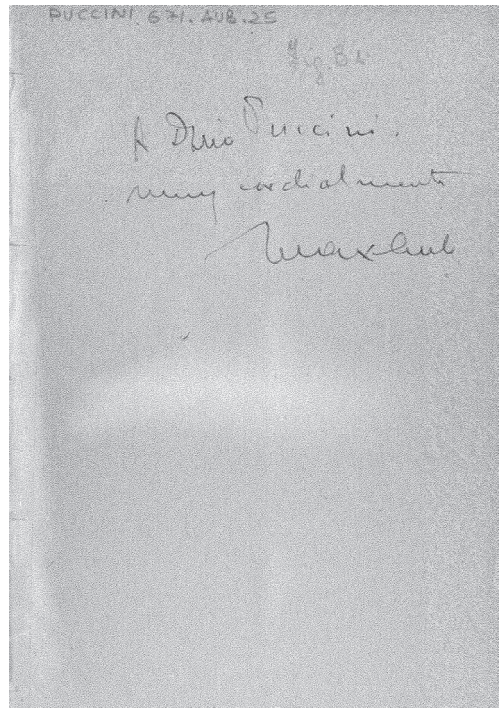 PUCCINI 671. AUB. 25
Fig. 81
A Dario Puccini.
muy cordialmente
Max Aub